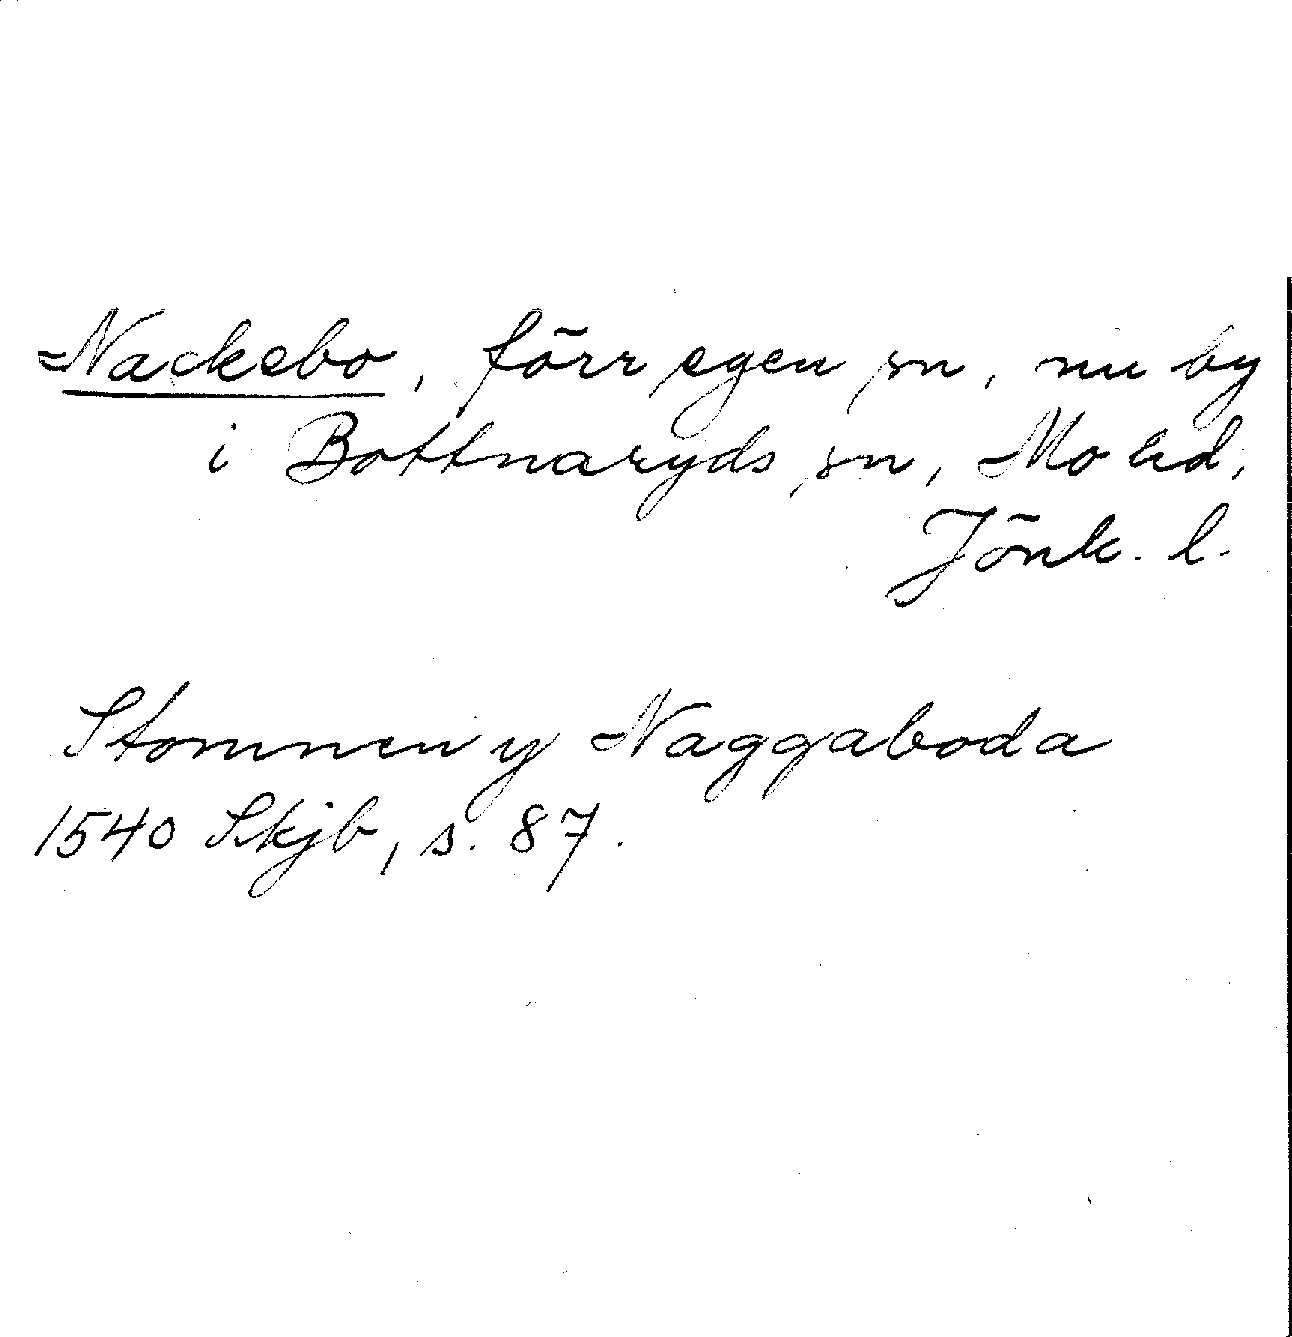 Nackebo, förr egen sn, nu by
i Bottnaryds sn, Mo hd,
Jönk. l.
Stommen y Naggaboda
1540 Skjb, s. 87.